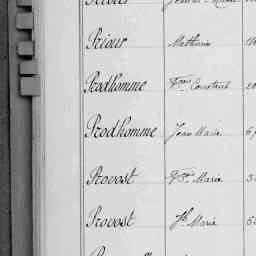 Priour Mathurin
Prodhomme Fçois Constant
Prodhomme Jean Marie
Provost Fçois Marie
Provost Jh Marie